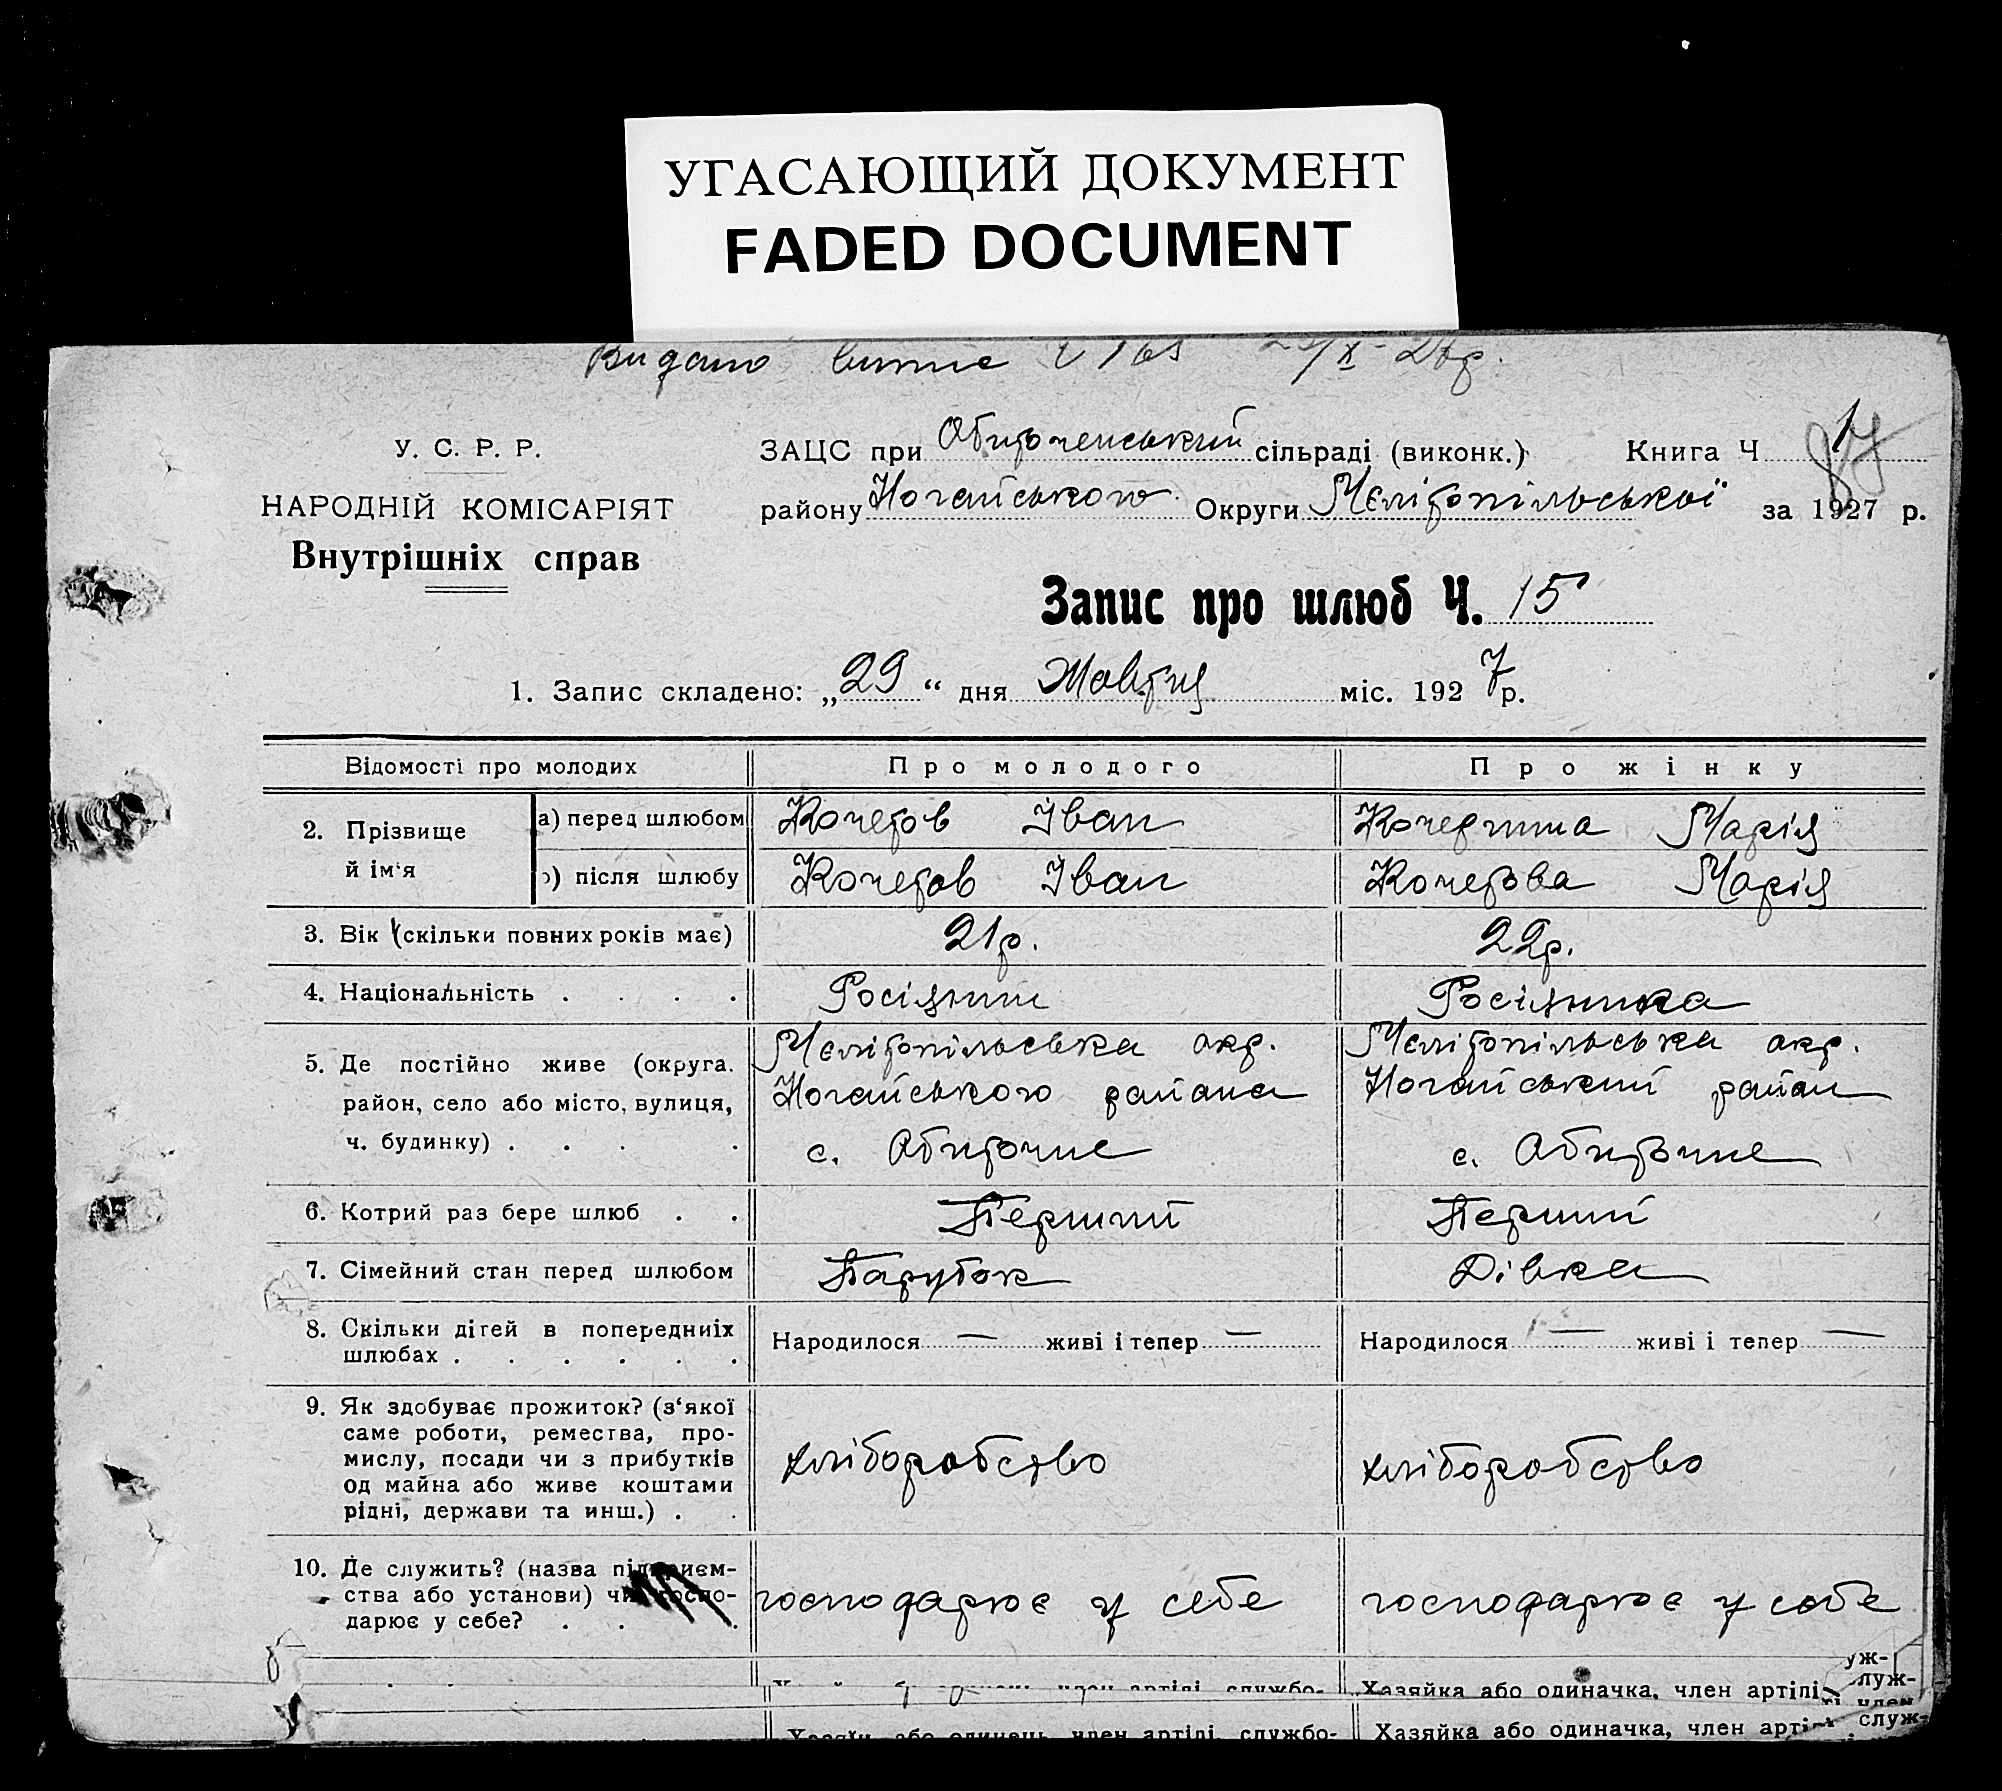 УГАСАЮЩИЙ ДОКУМЕНТ
FADED DOCUMENT
Видано
У. С. Р. Р.
НАРОДНІЙ КОМІСАРІЯТ
Внутрішніх справ
ЗАЦС при Обиточенський сільраді (виконк.) Книга Ч 1
87
району Ногайського Округи Мелітопільської за 1927 р.
Запис про шлюб Ч. 15
1. Запис складено: „29“ дня Жовтня міс. 1927 р.
Відомості про молодих Про молодого Про жінку
2. Прізвище й ім‘я а) перед шлюбом Кочетов Іван Марія
) після шлюбу Кочетов Іван Кочетова Марія
3. Вік (скільки повних років має) 21р. 22р.
4. Національність . . . . Росіянин Росіянка
5. Де постійно живе (округа. Мелітопільська окр. Мелітопільська окр.
район, село або місто, вулиця, Ногайського района Ногайський район
ч. будинку) . . . . с. Обиточне с. Обиточне
6. Котрий раз бере шлюб . . Перший Перший
7. Сімейний стан перед шлюбом Парубок Дівка
8. Скільки дітей в попередниіх
шлюбах . . . . . . Народилося — живі і тепер — Народилося — живі і тепер —
9. Як здобуває прожиток? (з‘якої
саме роботи, ремества, про-
мислу, посади чи з прибутків хліборобство хліборобство
од майна або живе коштами
рідні, держави та инш.) . .
10. Де служить? (назва підприєм-
ства або установи) чи госпо- господарює у себе господарює у себе
дарює у себе? . . .
Хазяйка або одиначка, член артілі
Хазяїн або одинець, член артілі, службо- Хазяйка або одиначка, член арті служ-